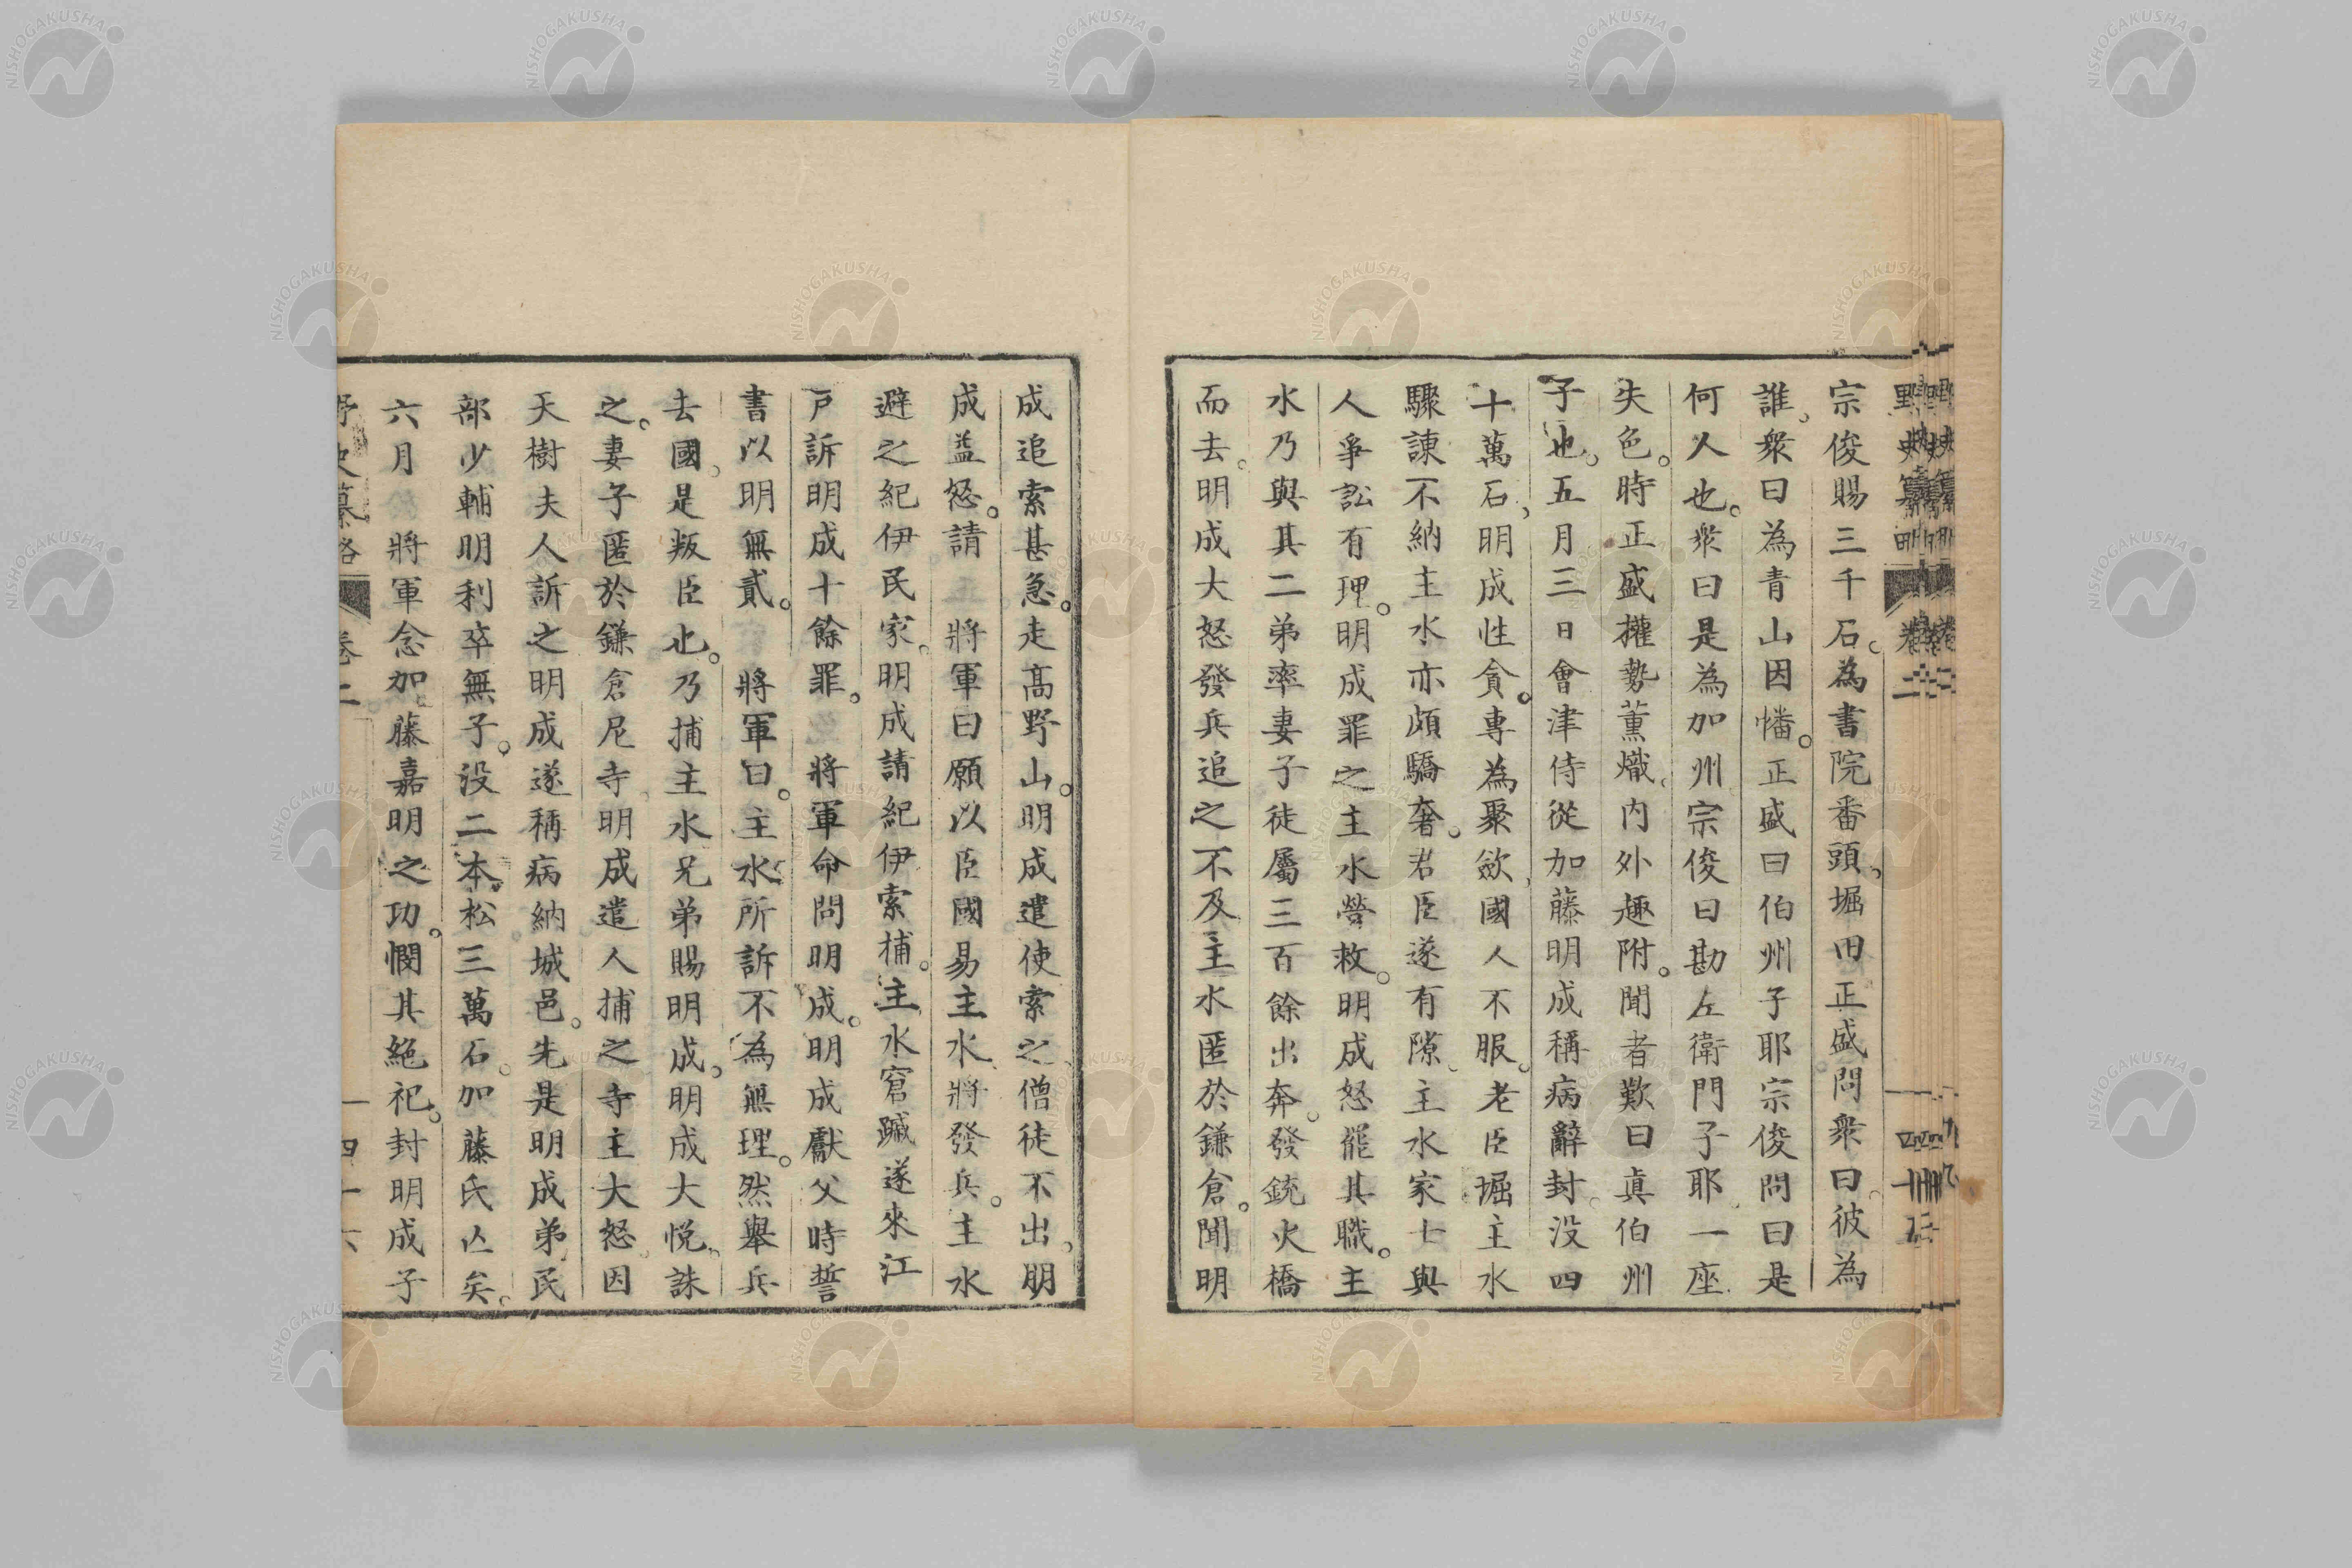 宗俊賜三千石。為書院番頭。堀田正盛問衆曰。彼為
誰。衆曰為青山因幡。正盛曰伯州子耶宗俊問曰是
何人也。衆曰是為加州宗俊曰勘左衛門子耶。一座
失色。時正盛權勢薰熾。内外趣附。聞者歎曰眞伯州
子也。五月三日會津侍從加藤明成稱病辭封。没四
十萬石。明成性貪。專為聚斂。國人不服。老臣堀主水
驟諌不納主水亦頗驕奢。君臣遂有隙。主水家士與
人爭訟有理。明成罪之主水營救。明成怒罷其職。主
水乃與其二弟率妻子徒屬三百餘出奔。發銃火橋
而去。明成大怒發兵追之不及主水匿於鎌倉。聞明
成追索甚急。走髙野山。明成遣使索之僧徒不出。明
成益怒。請將軍曰願以臣國易主水。將發兵。主水
避之紀伊民家。明成請紀伊索捕。主水窘蹴遂來江
戸訴明成十餘罪。將軍命問明成。明成獻父時誓
書以明無貳。將軍曰。主水所訴不為無理。然舉兵
去國。是叛臣也。乃捕主水兄弟賜明成。明成大悦。誅
之。妻子匿於鎌倉尼寺。明成遣人捕之寺主大怒。因
天樹夫人訴之明成遂稱病納城邑。先是明成弟民
部少輔明利卒無子。没二本松三萬石。加藤氏亾矣。
六月將軍念加藤嘉明之功。憫其絶祀。封明成子